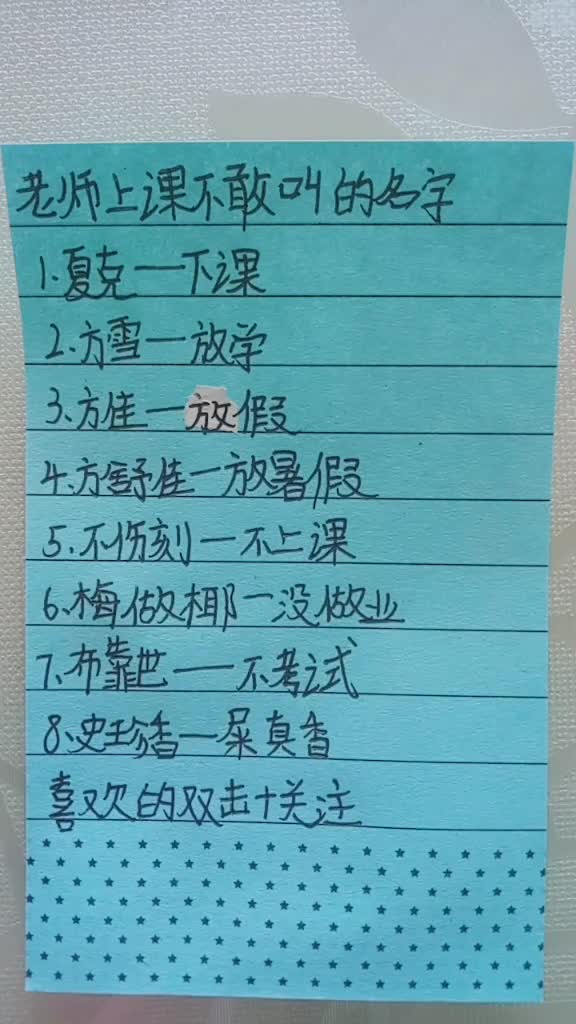 老师上课不敢叫的名字
1.夏克一下课
2.方雪一放学
3、方佳一放假
4.方舒佳一放暑假
5.不伤刻一不上课
6、梅做椰一没做业
7、布靠世一不考试
8、史珍香一屎真香
喜欢的双击+关注